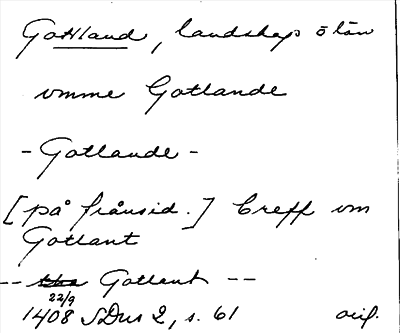 Gottland, landskap o län
vmme Gotlande
- Gotlande -
[på frånsid.] Breff vm
Gotlant
-- Gotlent --
22/9
1408 SDns 2, s. 61 orig.